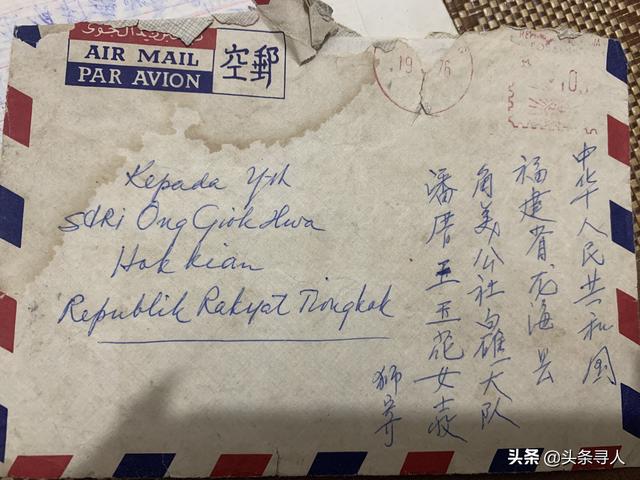 الجوى
AIR MAIL
PAR AVION
空郵
19 76
0
Kepada Yth
SDRI Ong Giok Hwa
Hok kian
Republik Rakyat Tiongkok
中华人民共和国
福建省龙海县
角美公社白礁大队
潘厝王玉花女士收
狮寄
头条@头条寻人